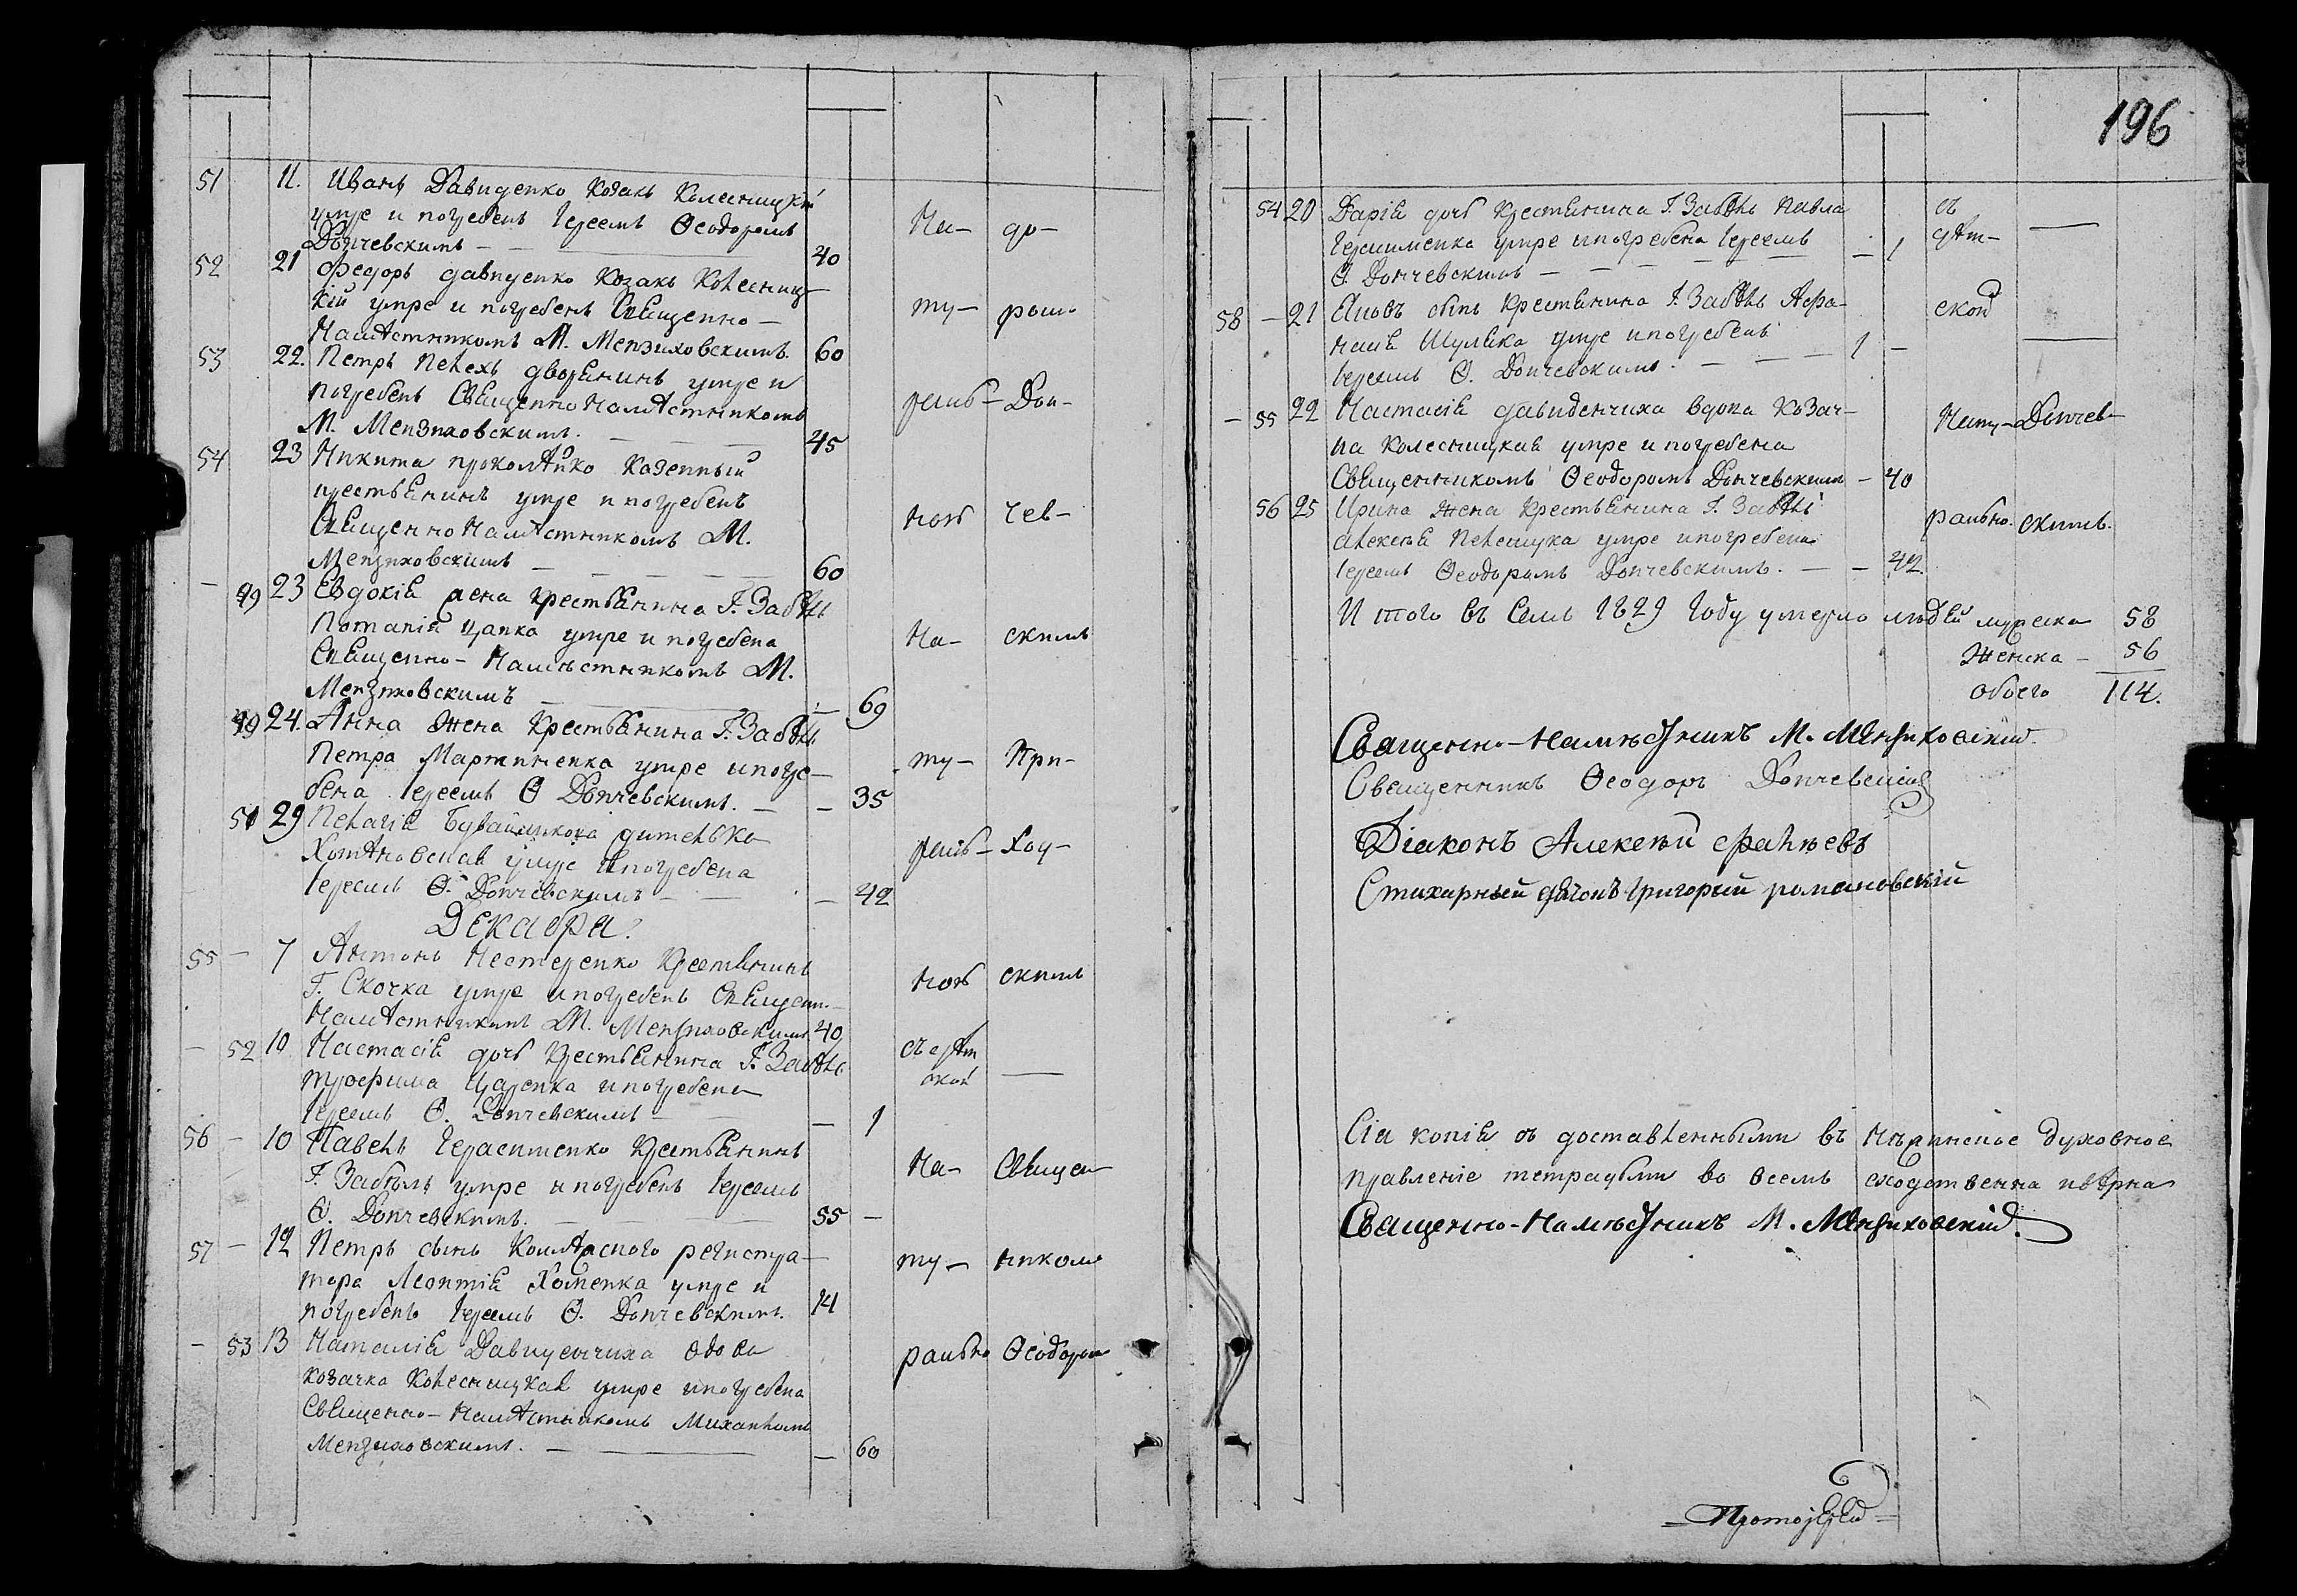 51 11. Иванъ Давиденко Козакъ Колесницкій
умре и погребенъ Іереемъ Ѳеодоромъ
Дончевскимъ — 40
На- до-
52 21 Федоръ давиденко Козакъ Колесниц-
кій умре и погребенъ Священно-
Намѣстникомъ М. Мензиховскимъ. 60
ту- ромъ
53 22. Петръ Пелехъ дворянинъ умре и
погребенъ СвященноНамѣстникомъ
М. Мензиховскимъ. 45
раль- Дон-
54 23 Никита прокопѣнко Казенный
крестьянинъ умре и погребенъ
СвященноНамѣстникомъ М.
Мензиховскимъ 60
ною чев-
— 49 23 Евдокія жена крестьянина Г. Забѣлы
Потапія Цапка умре и погребена
Священно-Намѣстникомъ М.
Мензиховскимъ — 69
На- скимъ
49 24. Анна Жена Крестьянина Г. Забѣлы
Петра Мартиненка умре и погре-
бена Іереемъ Ѳ Дончевскимъ. — 35
ту- При-
51 29 Пелагія дителька
умре и погребена
Іереемъ Ѳ. Дончевскимъ — 42
раль- Ход-
Декабра.
55 — 7 Антонъ Нестеренко Крестянинъ
Г. Скочка умре и погребенъ Священ.-
Намѣстникомъ М. Мензиховскимъ 40
ною скимъ
— 52 10 Настасія дочь Крестьянина Г. Забѣлы
трофима Царенка и погребена
Іереемъ Ѳ. Дончевскимъ — 1
съ дѣт
ской —
56 — 10 Павелъ Герасименко Крестьянинъ
Г. Забѣлы умре и погребенъ Іереемъ
Ѳ. Дончевскимъ. 55 —
На- Священ
57 — 12 Петръ сынъ регистра-
тора Леонтія Хоменка умре и
погребенъ Іереемъ Ѳ. Дончевскимъ. 14
ту- никомъ
— 53 13 Наталія Давиденчиха вдова
козачка Колесницкая умре и погребена
Священно-Намѣстникомъ Михаиломъ
Мензиховскимъ. — 60
рально Ѳеодоромъ
196
54 20 Дарія дочь Крестянина Г. Забѣлы Павла
Герасименка умре и погребена Іереемъ
Ѳ. Дончевскимъ — — 1
съ
дѣт- —
58 — 21 Яковъ сынъ Крестянина Г. Забѣлы Афа-
насія Шуляка умре и погребенъ
Іереемъ Ѳ. Дончевскимъ. 1 —
ской —
— 55 22 Настасія давиденчиха вдова Козач-
ка Колесницкая умре и погребена
Священникомъ Ѳеодоромъ Дончевскимъ — 40
Нату- Дончев-
56 25 Ирина жена Крестьянина Г. Забѣлы
алексѣя Пелешука умре и погребена
Іереемъ Ѳеодоромъ Дончевскимъ. — 42.
рально. скимъ.
И того въ Семъ 1829 Году умерло людей мужеска 58
Женска — 56
обоего 114.
Священно-Намѣстникъ М. Мензиховскій.
Священникъ Ѳеодоръ Дончевскій
Діаконъ Алексѣй
Стихарный дячокъ Григорій романовскій
Сія копія съ доставленными въ Нѣжинское Духовное
правленіе тетрадьми во всемъ сходственна и вѣрна
Священно-Намѣстникъ М. Мензиховскій.
— Протоіерей —